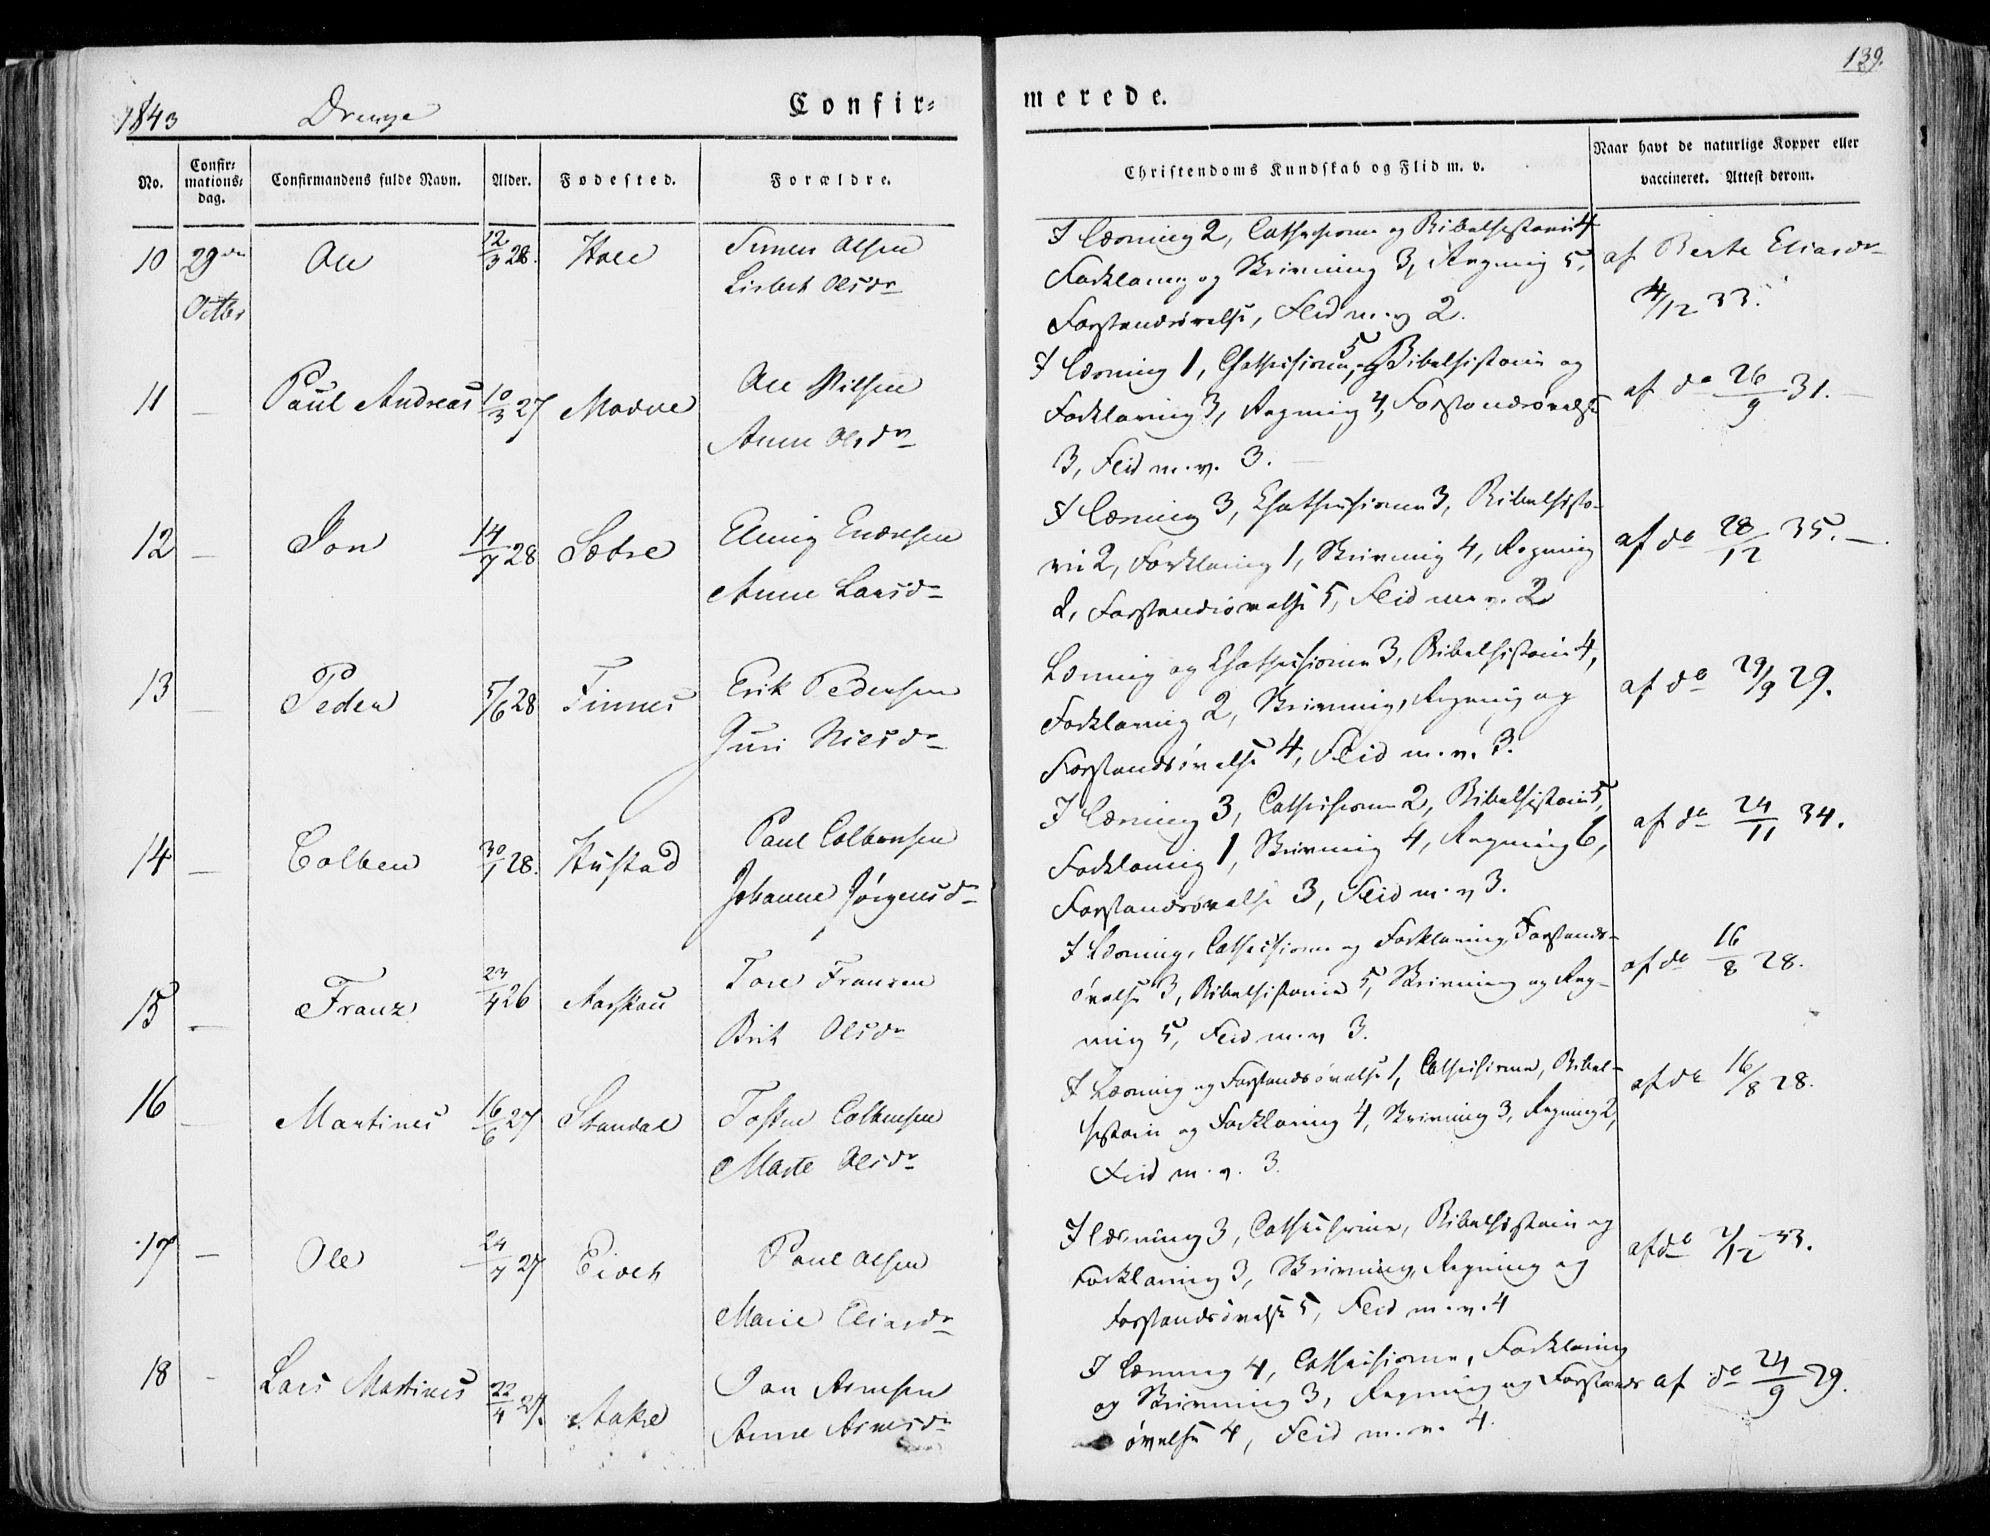 139.
1843 Drenge Confir= merede.
No. Confir=mations=dag. Confirmandens fulde Navn. Alder. Fødested. Forældre. Christendoms Kundskab og Flid m. v. Naar havt de naturlige Kopper eller vaccineret. Attest derom.
10 29de Octbr Ole 12/3 28. Hole Simen Olsen
Lisbet Olsdr
I Læsning 2, Cathechisme og Bibelhistorie 4
Forklaring og Skrivning 3, Regning 5,
Forstandsøvelse, Flid m. v 2.
af Berte Eliasdr
4/12 33.
11 — Paul Andreas 10/3 27 Modve Ole Nilsen
Anne Olsdr
I Læsning 1, Chatechisme 5, og Bibelhistorie og
Forklaring 3, Regning 4, Forstandsøvelse
3, Flid m. v. 3.
af do 26/9 31.
12 — Jon 14/7 28 Sætre Elling Endresen
Anne Larsdr
I Læsning 3, Chathechisme 3, Bibelhisto-
rie 2, Forklaring 1, Skrivning 4, Regning
2, Forstandsøvelse 5, Flid m. v. 2
af do 28/12 35.
13 — Peder 5/6 28 Finnes Erik Pedersen
Guri Nilsdr
Læsning og Chathechisme 3, Bibelhistorie 4,
Forklaring 2, Skrivning, Regning og
Forstandsøvelse 4, Flid m. v. 3.
af do 29/9 29.
14 — Colben 30/1 28. Hustad Paul Colbensen
Johanne Jørgensdr
I Læsning 3, Cathechisme 2, Bibelhistorie 5,
Forklaring 1, Skrivning 4, Regning 6,
Forstandsøvelse 3, Flid m. v 3.
af do 24/11 34.
15 — Franz 23/4 26 Aarskau Tore Fransen
Brit Olsdr
I Læsning, Cathechisme og Forklaring, Forstands-
øvelse 3, Bibelhistorie 5, Skrivning og Reg-
ning 5, Flid m. v 3.
af do 16/8 28.
16 — Martines 16/6 27 Standal Tosten Colbensen
Marte Olsdr
I Læsning og Forstandsøvelse 1, Cathechisme, Bibel-
historie og Forklaring 4, Skrivning 3, Regning 2,
Flid m. v. 3.
af do 16/8 28.
17 — Ole 24/7 27 Eivet Paul Olsen
Marie Eliasdr
I Læsning 3, Cathechisme, Bibelhistorie og
Forklaring 3, Skrivning, Regning og
Forstandsøvelse 5, Flid m. v. 4
af do 2/12 33.
18 — Lars Martines 22/4 27. Aakre Jon Arnesen
Anne Arnesdr
I Læsning 4, Cathechisme, Forklaring
og Skrivning 3, Regning og Forstands
øvelse 4, Flid m. v. 4.
af do 24/9 29.